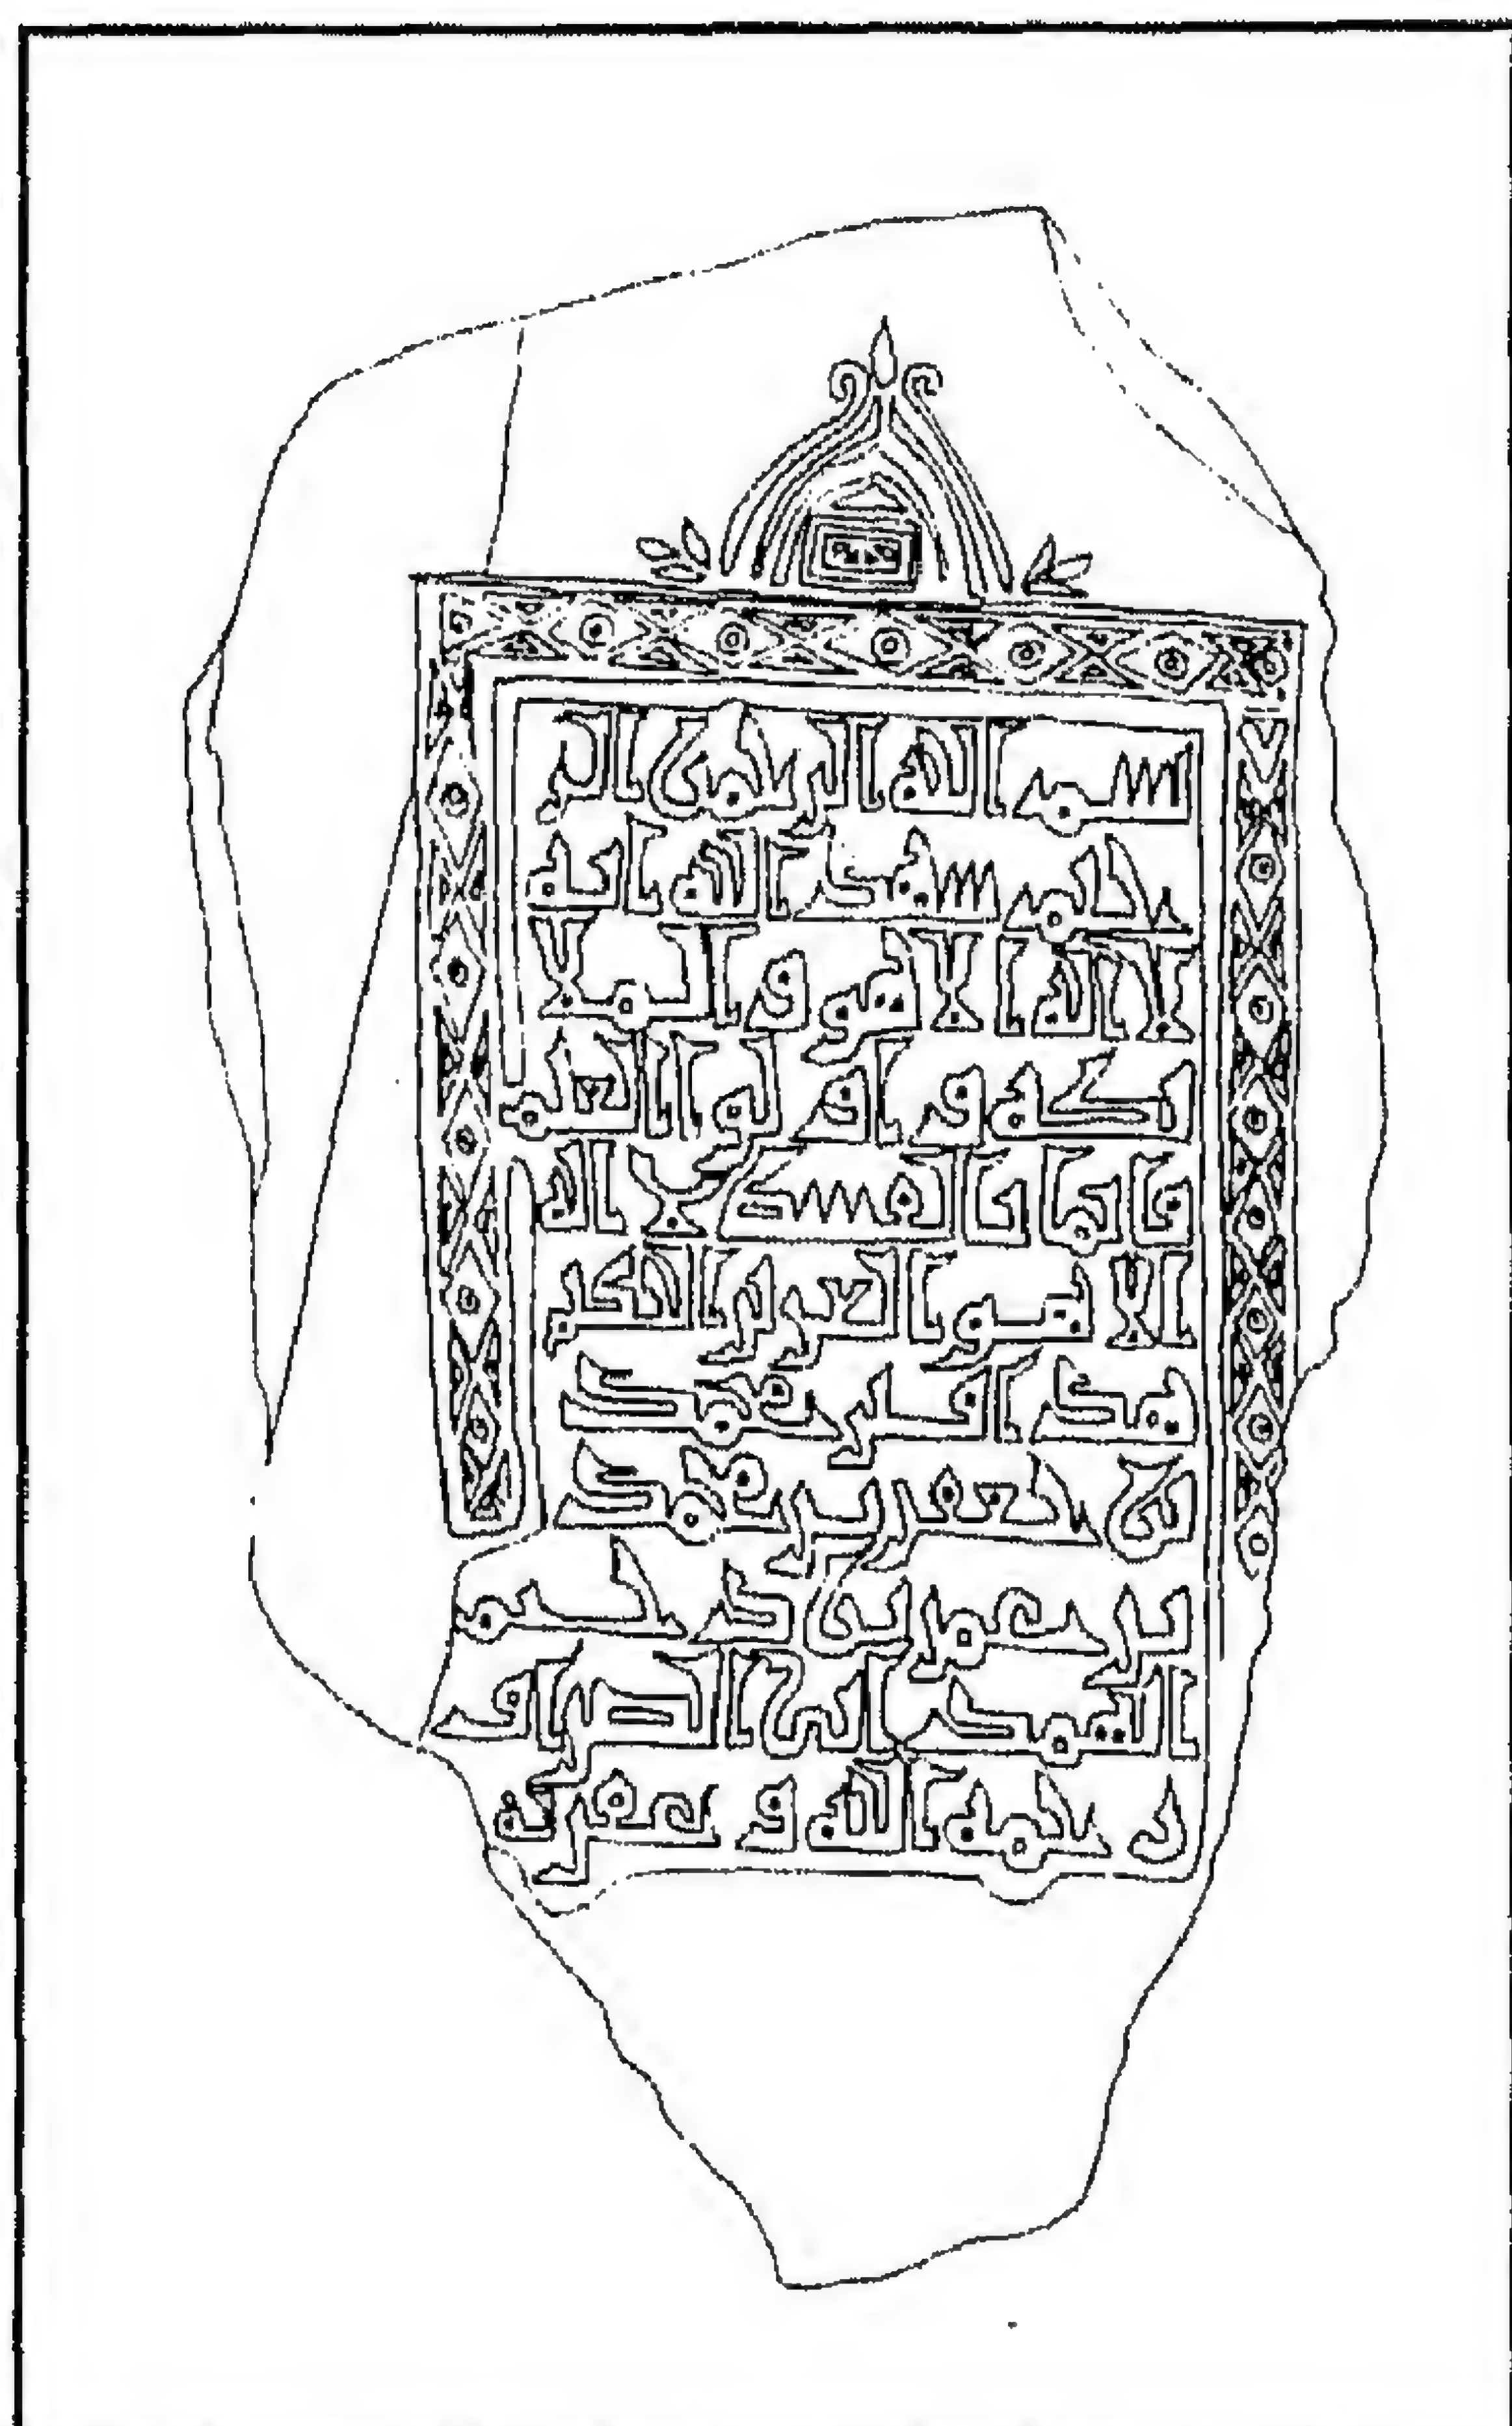 بسم الله الرحمن الر
حيم شهد الله انه
لا اله الا هو و الملا
ئكة و اولوا العلم
قائما بالقسط لا اله
الا هو العزيز الحكيم
هذا قبر محمد
بن جعفر بن محمد
بن عمر بن
ابن
رحمه الله و غفر له